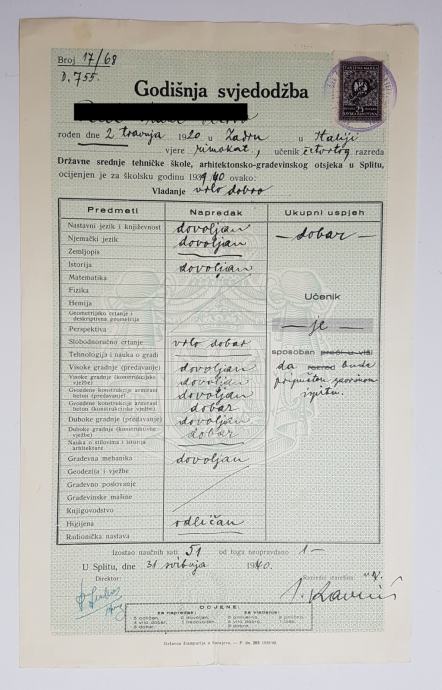 Broj 17/68
D. 755.
Godišnja svjedodžba
rođen dne 2 travnja 1920 u Zadru u Italiji
vjere rimokat, učenik četvrtog razreda
Državne srednje tehničke škole, arhitektonsko-građevinskog otsjeka u Splitu,
ocijenjen je za školsku godinu 1939/40 ovako:
Vladanje vrlo dobro
Predmeti Napredak Ukupni uspjeh
Nastavni jezik i književnost dovoljan — dobar —
Njemački jezik dovoljan
Zemljopis
Istorija dovoljan
Matematika
Fizika
Hemija Učenik
Geometrijsko crtanje i
deskriptivna geometrija
Perspektiva — je —
Slobodnoručno crtanje vrlo dobar
Tehnologija i nauka o gradi sposoban preći u viši
Visoke gradnje (predavanje) dovoljan da razred bude
Visoke gradnje (konstrukcijske
vježbe) dovoljan pripušten završnom
Gvozdene konstrukcije armirani
beton (predavanje) dovoljan ispitu.
Gvozdene konstrukcije armirani
beton (vježbe) dobar
Duboke gradnje (predavanje) dovoljan
Duboke gradnje (konstruktivne
vježbe) dobar
Nauka o stilovima i istorija
arhitekture
Građevna mehanika dovoljan
Geodezija i vježbe
Građevno poslovanje
Građevinske mašine
Knjigovodstvo
Higijena odličan
Radionička nastava
Izostao naučnih sati 51 od toga neopravdano 1—
U Splitu, dne 31 svibnja 1940.
Direktor: Razredni starešina
OCJENE:
za napredak: za vladanje:
5 odličan, 2 dovoljan,
4 vrlo dobar, 1 nedovoljan.
3 dobar,